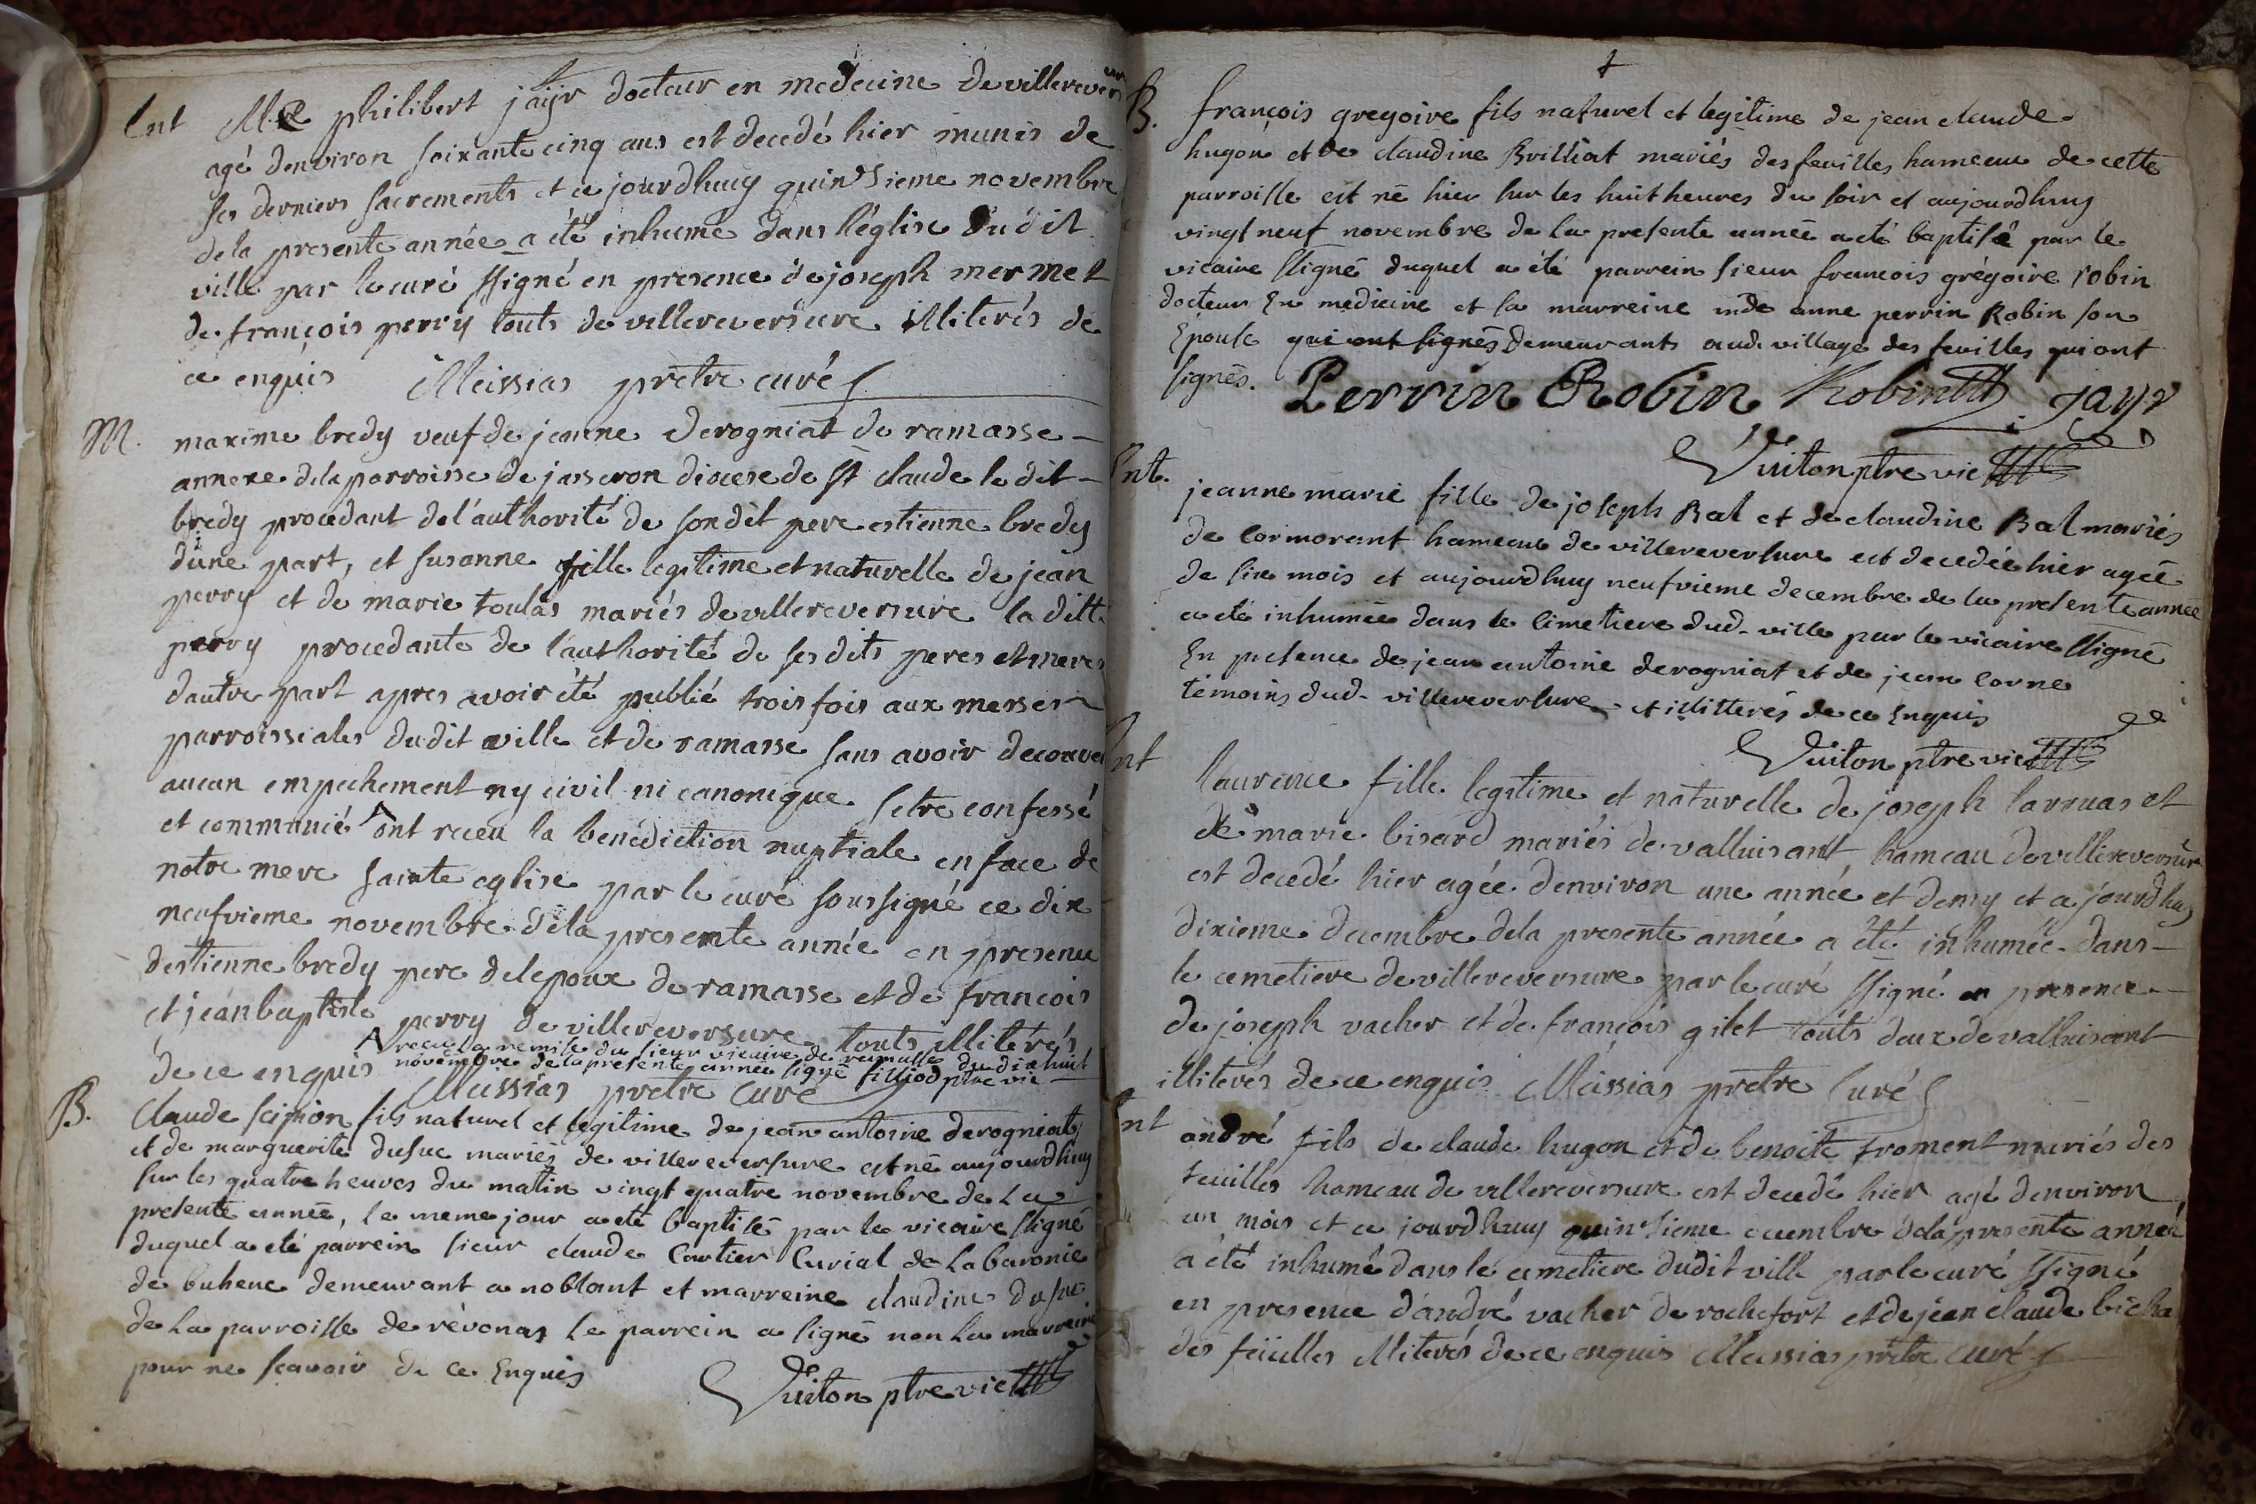 Ent Mre philibert jayr docteur en medecine de villerevers
agé denviron soixante cinq ans est decedé hier munis de
ses derniers sacrements et ce jourdhuy quinsieme novembre
de la presente année a été inhumé dans léglise dudit
ville par le curé ssigné en presence de joseph mermet
de françois perry touts de villereversure illiterés de
ce enquis Meissias pretre curé
M. maxime bredy veuf de jeanne derogniat de ramasse
annexe dela parroisse de jasseron diocese de st claude le dit
bredy procedant de l'authorité de sondit pere estienne bredy
dune part, et susanne fille legitime et naturelle de jean
perry et de marie toulas mariés de villereversure la ditte
perry procedante de l'authorité de ses dits peres et meres
dautre part apres avoir été publié trois fois aux messes
parroissiales dudit ville et de ramasse sans avoir decouve
aucun empechement ny civil ni canonique setre confessé
et communié ont receu la benediction nuptiale en face de
notre mere sainte eglise par le curé soussigné ce dix
neufvieme novembre dela presente année en presence
destienne bredy pere delepoux de ramasse et de francois
et jean baptiste perry de villereversure touts illiterés
receu la remise du sieur vicaire de ramasse du dixhuit
de ce enquis novembre de la presente année signé filliod ptre vic
Meissias pretre curé
B. Claude scipion fils naturel et legitime de jean antoine derogniat
et de marguerite dufuc mariés de villereversure est né aujourdhuy
sur les quatre heures du matin vingt quatre novembre de la
presente année, le meme jour a eté baptisé par le vicaire ssigné
duquel a eté parrein sieur claude Cartier Curial de la baronie
de buhenc demeurant a noblant et marreine claudine dufuc
de la parroisse de révonas le parrein a signé non la marreine
pour ne scavoir de ce Enquis
Vuiton ptre vic
B. françois gregoire fils naturel et legitime de jean claude
hugon et de claudine Brilliat mariés des feuilles hameau de cette
parroisse est né hier sur les huit heures du soir et aujourdhuy
vingt neuf novembre de la presente année a eté baptisé par le
vicaire ssigné duquel a été parrein sieur francois grégoire robin
docteur En medicine et la marreine mde anne perrin Robin son
Epouse qui ont signés demeurants aud. village des feuilles qui ont
signés. Perrin Robin Robin jayr
Vuiton ptre vic
Ent. jeanne marie fille de joseph Bal et de claudine Bal mariés
de Cormorant hameau de villereversure est decedée hier agée
de six mois et aujourdhuy neufvieme decembre de la presente année
a eté inhumée dans le Cimetiere dud. ville par le vicaire ssigné
En presence de jean antoine derogniat et de jean Corne
témoins dud. villereversure et illitterés de ce Enquis
Vuiton ptre vic
Ent laurence fille legitime et naturelle de joseph larruas et
de marie bisard mariés de valluisant hameau de villereversure
est decedé hier agée denviron une année et demy et a jourdhuy
dixieme decembre dela presente année a été inhumée dans
le cemetiere de villereversure par le curé ssigné en presence
de joseph vacher et de françois gilet touts deux de valluisant
illiterés de ce enquis Meissias pretre Curé
Ent andré fils de claude hugon et de benoite froment mariés des
feuilles hameau de villereversure est decedé hier agé denviron
un mois et ce jourdhuy quinsieme decembre dela presente année
a été inhumé dans le cimetiere dudit ville par le curé ssigné
en presence dandré vacher de rochefort et de jean claude bicha
des feüilles illiterés de ce enquis Meissias pretre curé